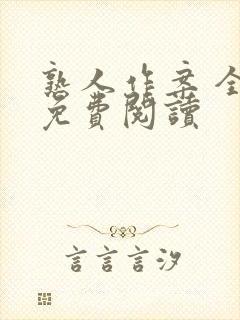 熟人作案全
免費閱讀
言言言汐